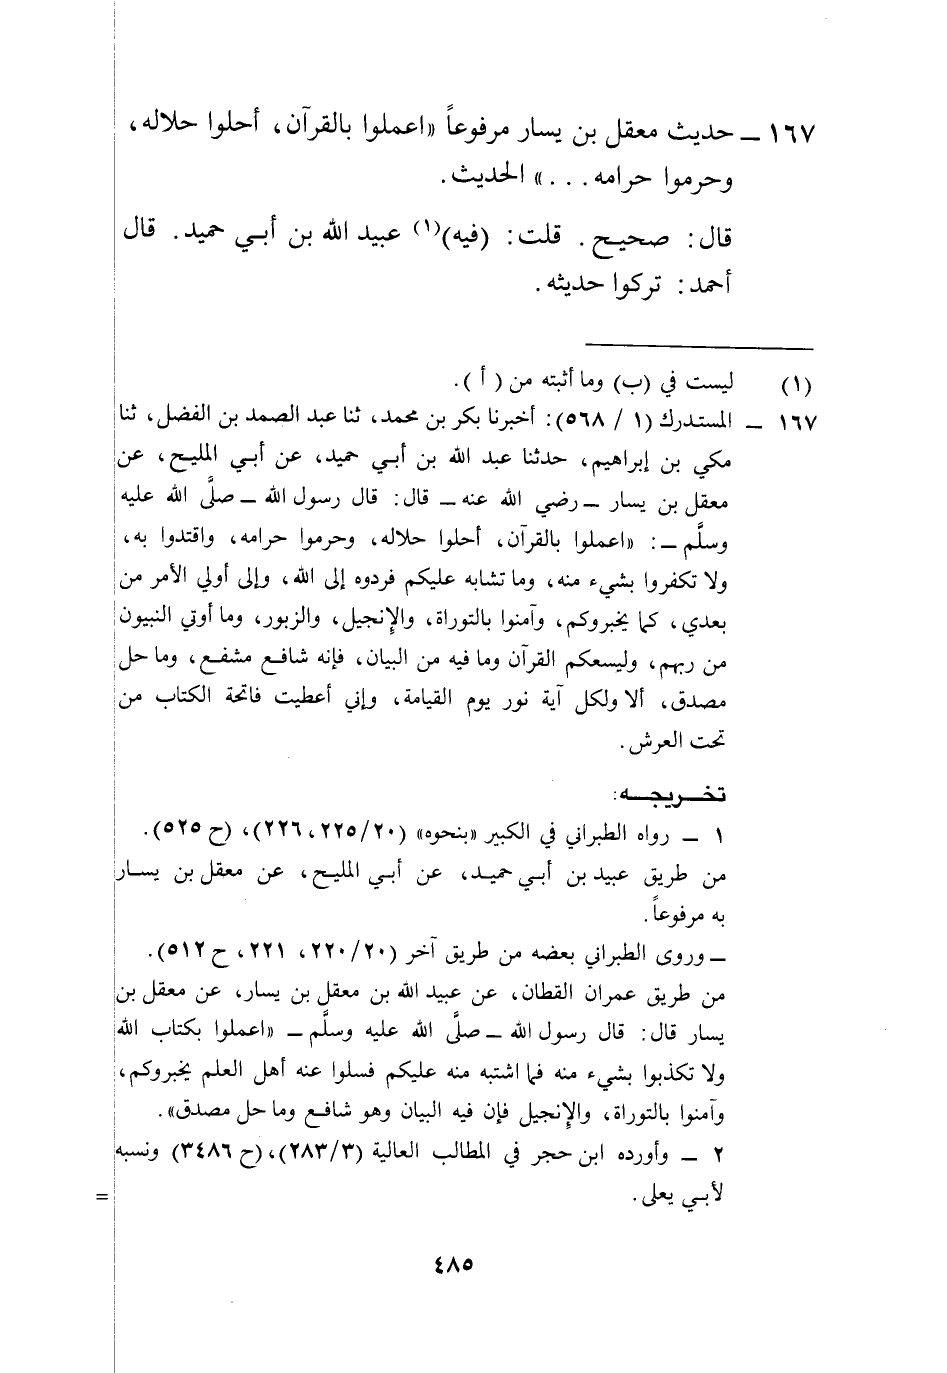 ١٦٧ ــ حديث معقل بن يسار مرفوعاً «اعملوا بالقرآن، أحلوا حلاله،
وحرموا حرامه . . .» الحديث.
قال: صحيح. قلت: (فيه)(١) عبيد الله بن أبي حميد. قال
أحمد: تركوا حديثه.
(١) ليست في (ب) وما أثبته من (أ).
١٦٧ ــ المستدرك (١ / ٥٦٨): أخبرنا بكر بن محمد، ثنا عبد الصمد بن الفضل، ثنا
مكي بن إبراهيم، حدثنا عبد الله بن أبي حميد، عن أبي المليح، عن
معقل بن يسار ــ رضي الله عنه ــ قال: قال رسول الله ــ صلَّى الله عليه
وسلَّم ــ: «اعملوا بالقرآن، أحلوا حلاله، وحرموا حرامه، واقتدوا به،
ولا تكفروا بشيء منه، وما تشابه عليكم فردوه إلى الله، وإلى أولي الأمر من
بعدي، كما يخبروكم، وآمنوا بالتوراة، والإنجيل، والزبور، وما أوتي النبيون
من ربهم، وليسعكم القرآن وما فيه من البيان، فإنه شافع مشفع، وما حل
مصدق، ألا ولكل آية نور يوم القيامة، وإني أعطيت فاتحة الكتاب من
تحت العرش.
تخـــريجـــه:
١ ــ رواه الطبراني في الكبير «بنحوه» (٢٢٥/٢٠، ٢٢٦)، (ح ٥٢٥).
من طريق عبيد بن أبي حميد، عن أبي المليح، عن معقل بن يسار
به مرفوعاً.
ــ وروى الطبراني بعضه من طريق آخر (٢٢٠/٢٠، ٢٢١، ح ٥١٢).
من طريق عمران القطان، عن عبيد الله بن معقل بن يسار، عن معقل بن
يسار قال: قال رسول الله ــ صلَّى الله عليه وسلَّم ــ «اعملوا بكتاب الله
ولا تكذبوا بشيء منه فما اشتبه منه عليكم فسلوا عنه أهل العلم يخبروكم،
وآمنوا بالتوراة، والإنجيل فإن فيه البيان وهو شافع وما حل مصدق».
٢ ــ وأورده ابن حجر في المطالب العالية (٢٨٣/٣)، (ح ٣٤٨٦) ونسبه
لأبي يعلى. =
٤٨٥